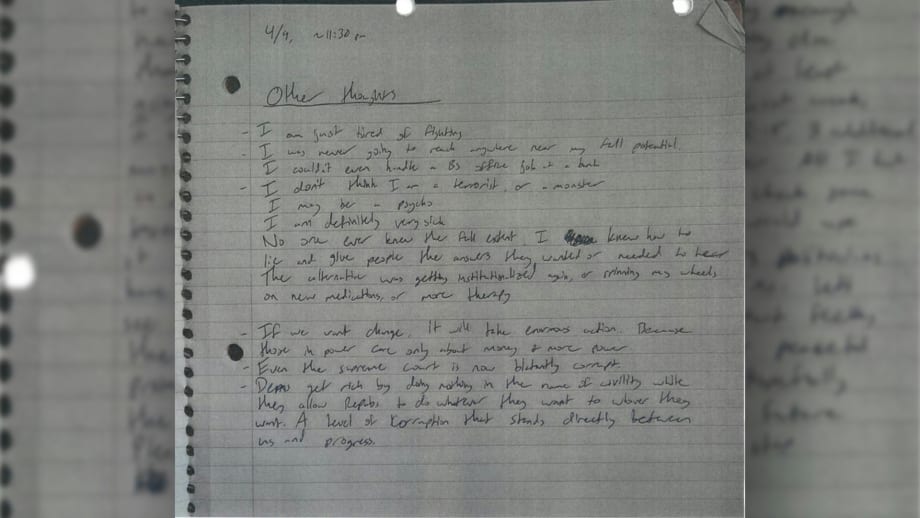 4/9, ~11:30 pm
Other thoughts
- I am just tired of fighting
- I was never going to reach anywhere near my full potential.
I couldn't even handle a BS office job at a bank
- I don't think I am a terrorist, or a monster
I may be a psycho
I am definitely very sick
No one ever knew the full extent. I knew how to
lie and give people the answers they wanted or needed to hear
The alternative was getting institutionalized again, or spinning my wheels
on new medications, or more therapy
- If we want change, it will take enormous action. Because
those in power care only about money & more power
- Even the supreme court is now blatantly corrupt
- Dems get rich by doing nothing in the name of civility while
they allow Repubs to do whatever they want to whoever they
want. A level of Korruption that stands directly between
us and progress.